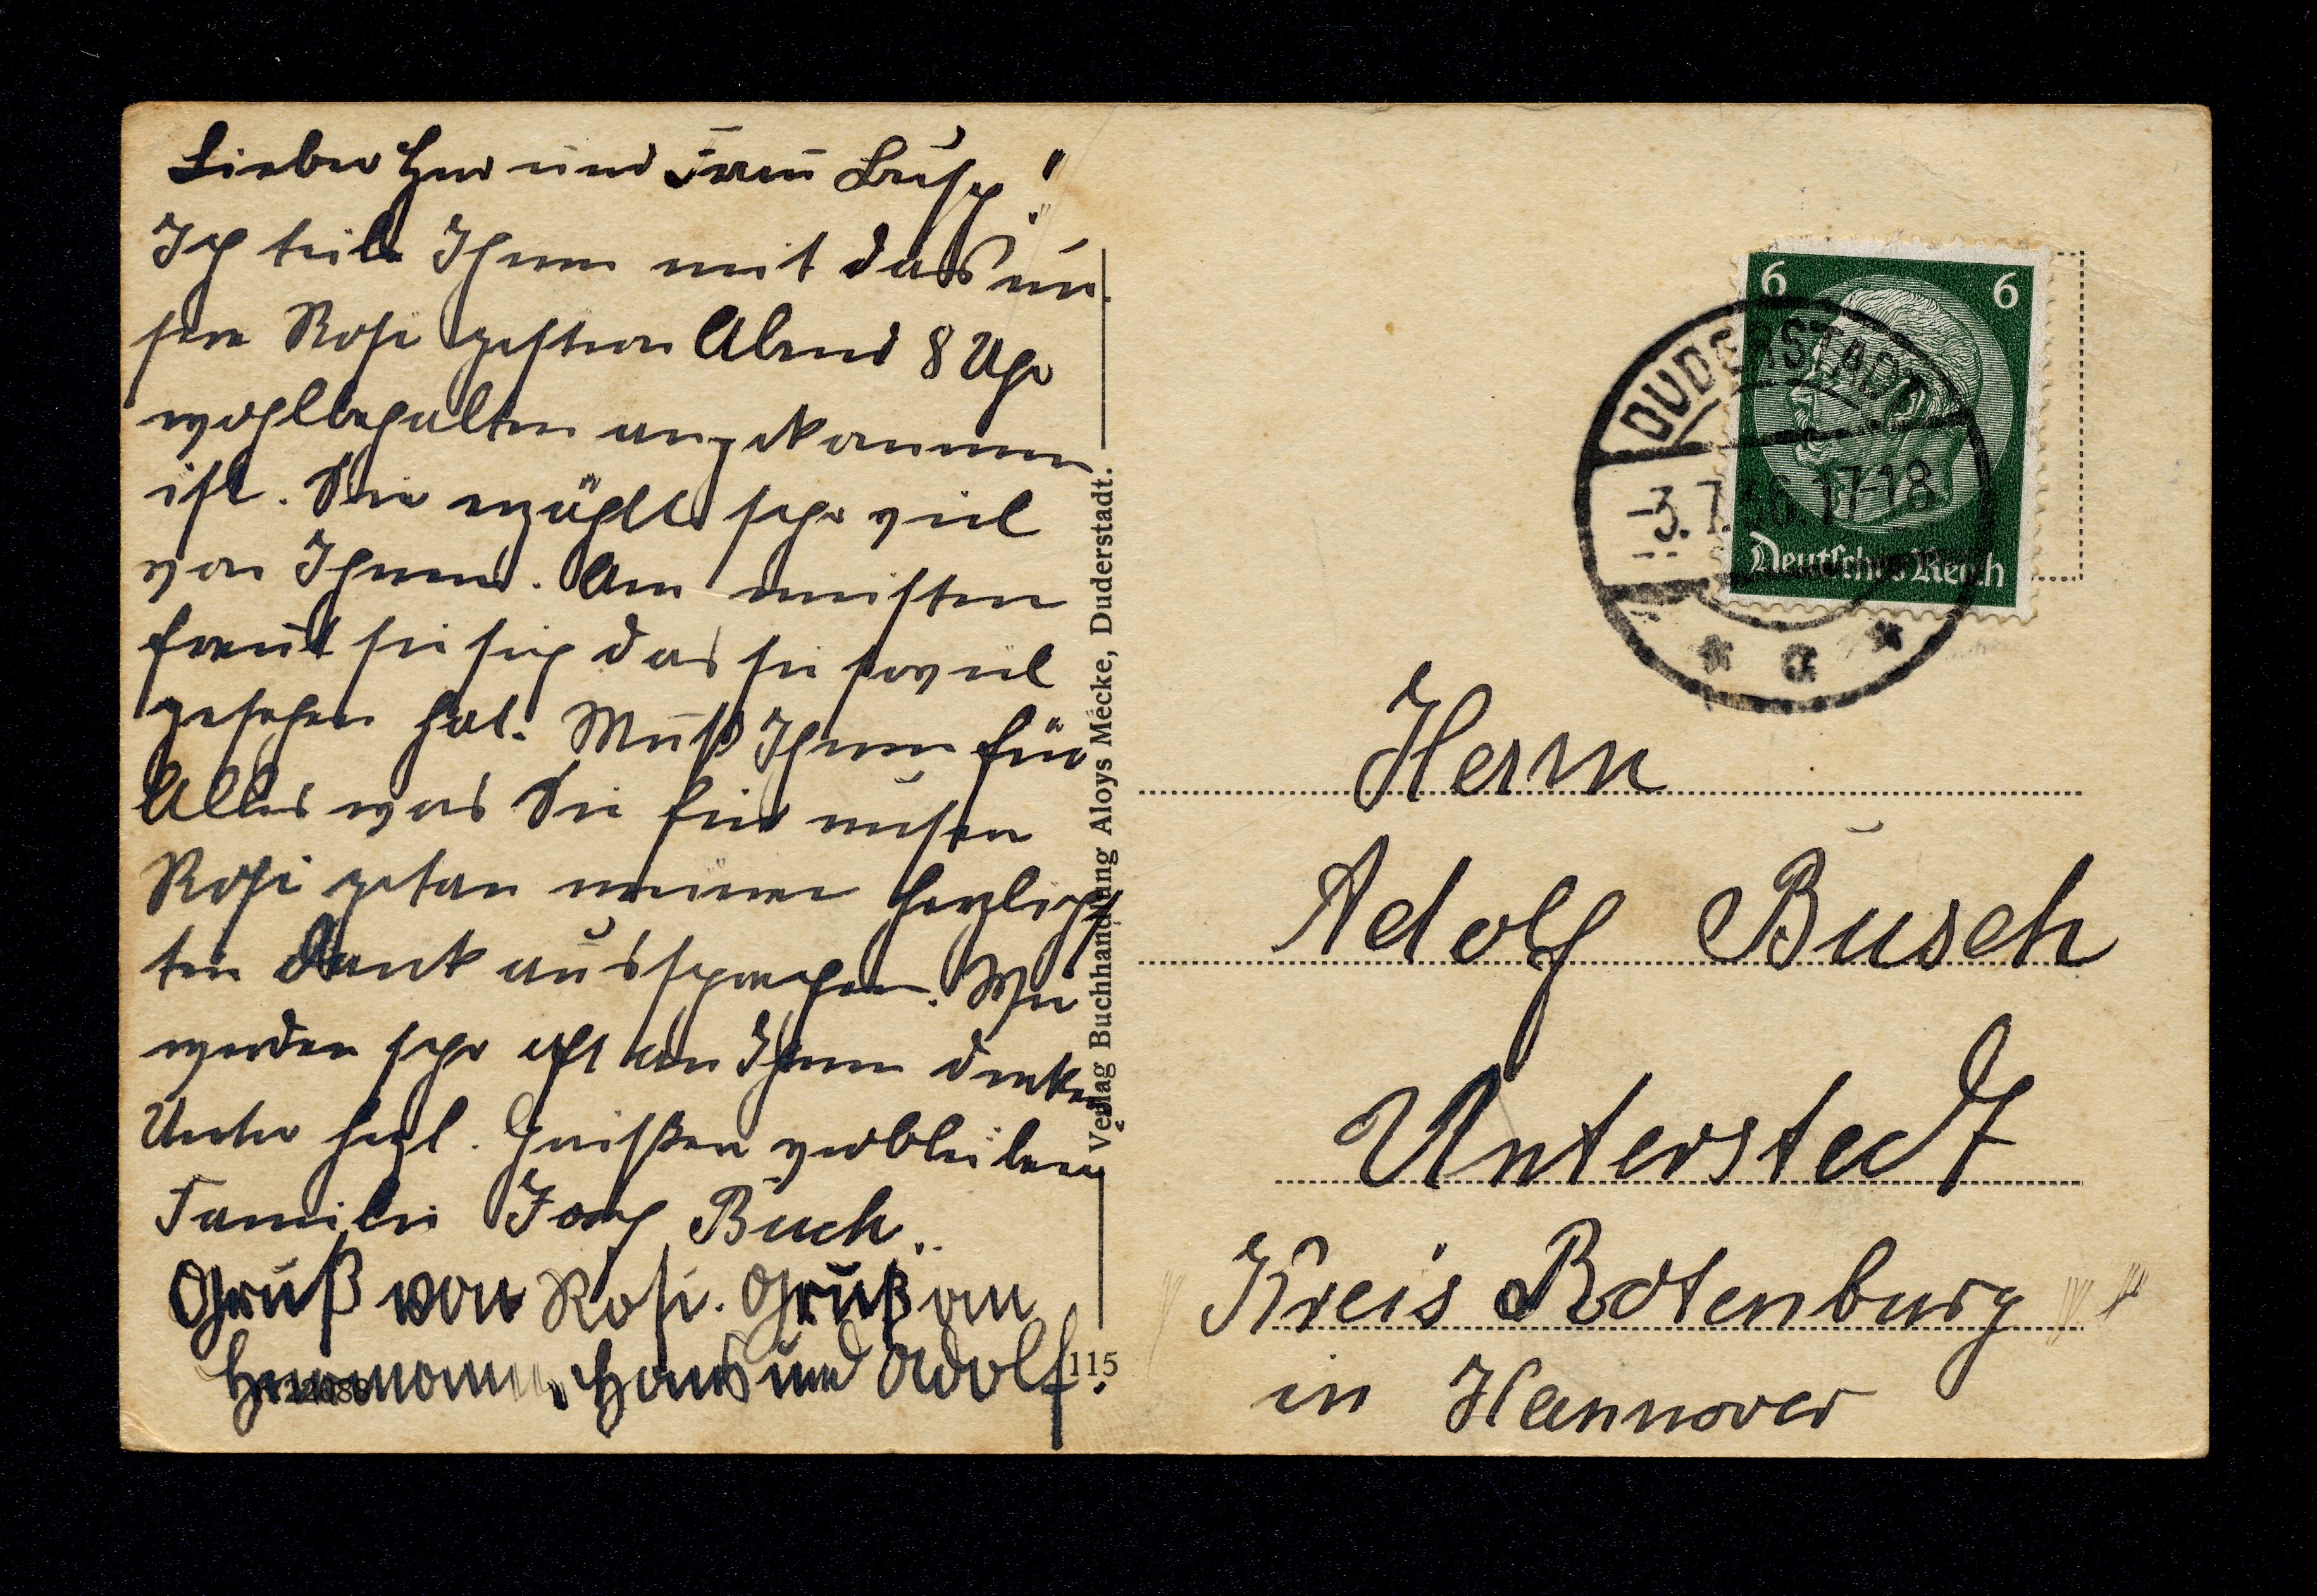 Lieber Herr und Frau Busch!
Ich teile Ihnen mit das un-
sere Rosi gestern Abend 8 Uhr
wohlbehalten angekommen
ist. Sie erzählt sehr viel
von Ihnen. Am meisten
freut sie sich das sie soviel
gesehen hat. Muß Ihnen für
Alles was Sie für unsere
Rosi getan meinen herzlichs
ten Dank aussprechen. Wir
werden sehr oft an Ihnen denken
Unter herzl. Grüßen verbleiben
Familie Buch.
Gruß von Rosi. Gruß an
Hermann, Hans und Adolf.
Verlag Buchhandlung Aloys Mecke, Duderstadt.
115
6 6
Deutsches Reich
DUDERSTADT
-3.7.36 17-18
* a *
Herrn
Adolf Busch
Unterstedt
Kreis Rotenburg
in Hannover